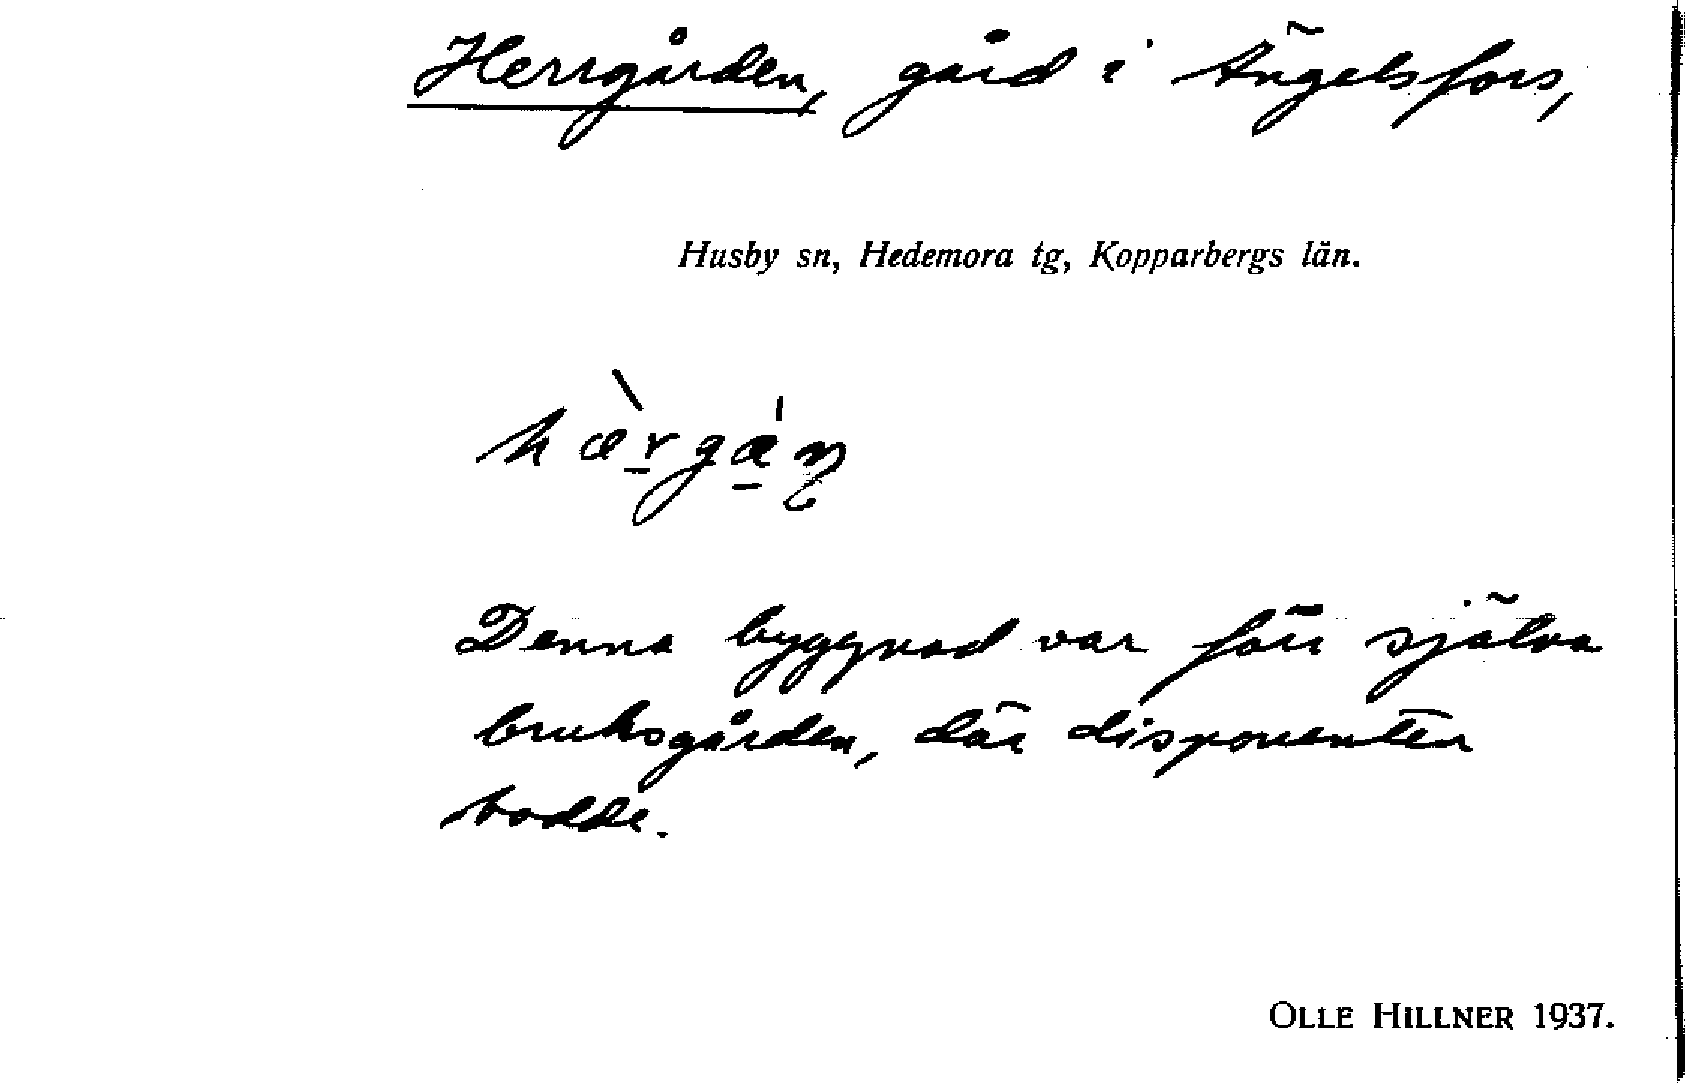 Herrgården, gård i Ängelsfors,
Husby sn, Hedemora tg, Kopparbergs län.
Denna byggnad var förr själva
bruksgården, där disponenten
bodde.
OLLE HILLNER 1937.